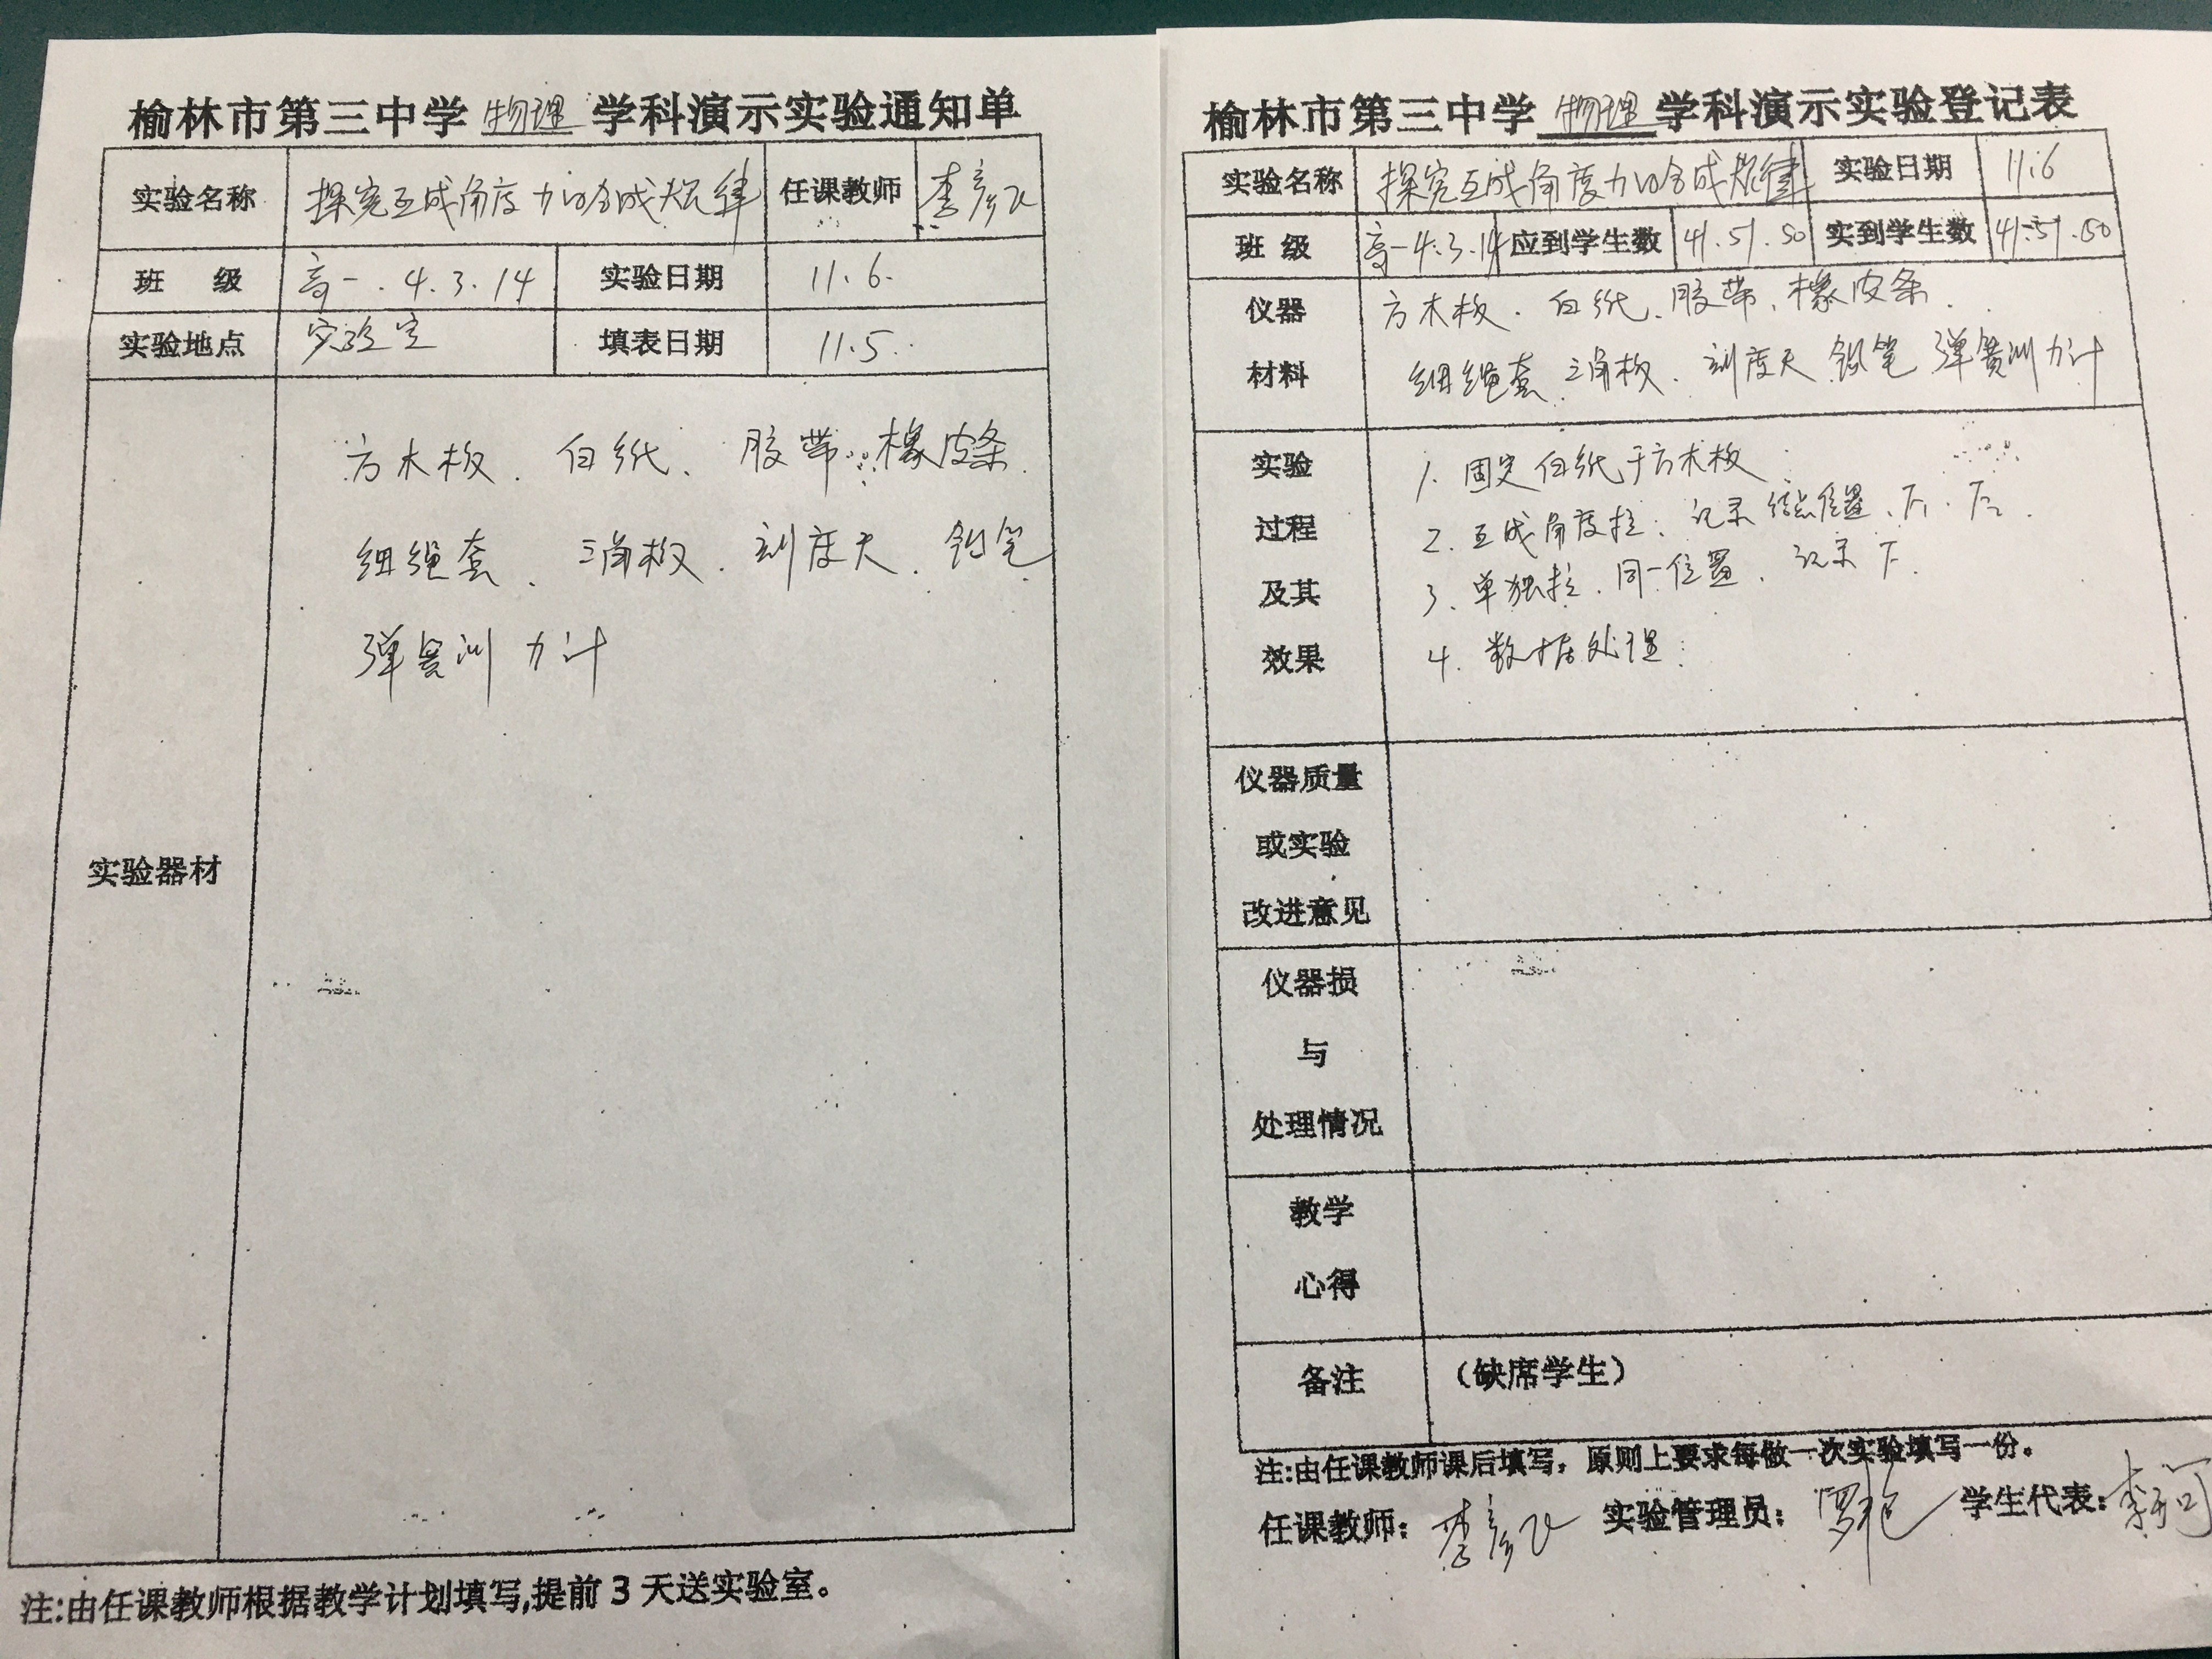 榆林市第三中学 物理 学科演示实验通知单
实验名称 探究互成角度力的合成规律 任课教师 李彦飞
班 级 高一.4.3.14 实验日期 11.6.
实验地点 实验室 填表日期 11.5.
实验器材
方木板、白纸、胶带、橡皮条
细绳套、三角板、刻度尺、铅笔
弹簧测力计
注:由任课教师根据教学计划填写,提前3天送实验室。
榆林市第三中学 物理 学科演示实验登记表
实验名称 探究互成角度力的合成规律 实验日期 11.6
班 级 高一4.3.14 应到学生数 41.51.50 实到学生数 41.51.50
仪器 方木板、白纸、胶带、橡皮条.
材料 细绳套、三角板、刻度尺 铅笔 弹簧测力计
实验 1.固定白纸于方木板
过程 2.互成角度拉:记录结点位置、F1、F2.
及其 3.单独拉.同一位置、记录F.
效果 4.数据处理:
仪器质量
或实验
改进意见
仪器损
与
处理情况
教学
心得
备注 (缺席学生)
注:由任课教师课后填写，原则上要求每做一次实验填写一份。
任课教师: 李彦飞 实验管理员: 学生代表: